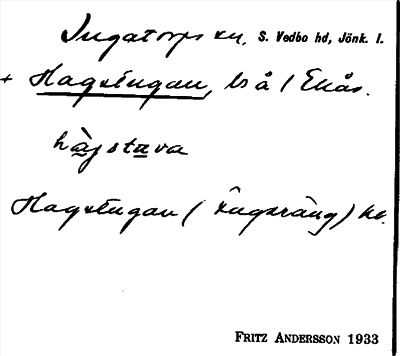 Ingatorps sn. S. Vedbo hd, Jönk. l.
+ Hagstugan, ls å 1 Ekås.
hàgstuva
Hagstugan (Ängsräng) kc.
FRITZ ANDERSSON 1933